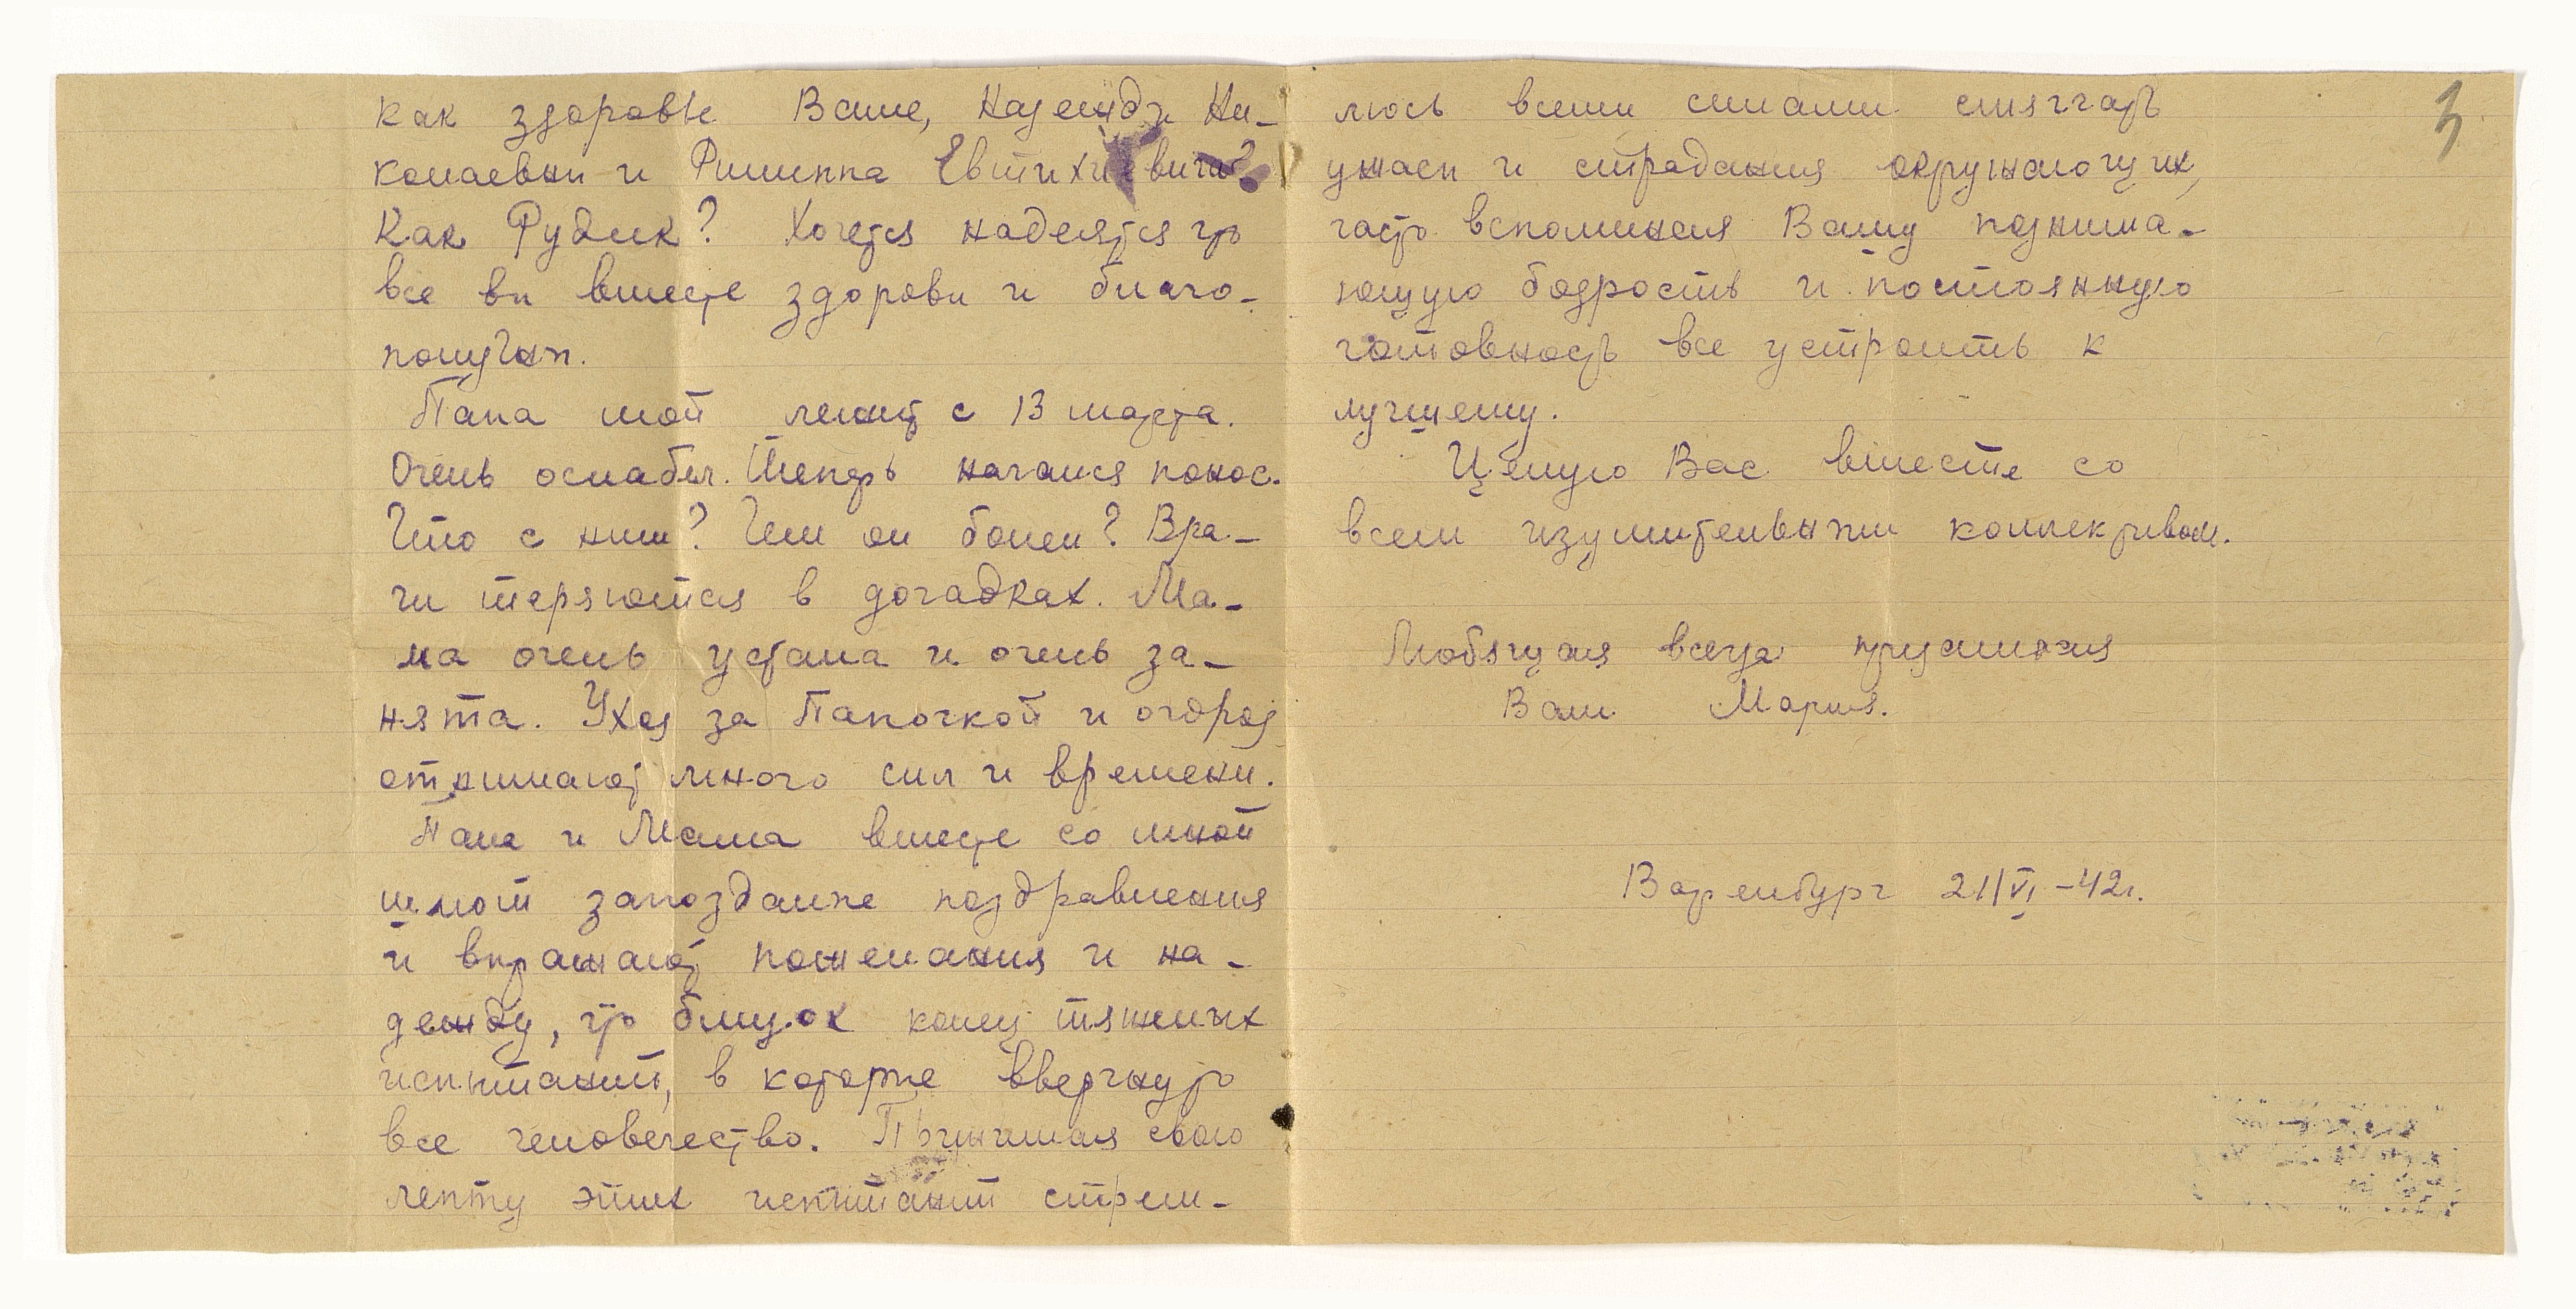 как здоровье Ваше, Надежды Ни-
колаевны и Филиппа Евтихиевича?
Как Рудик? Хочется надеяться что
все вы вместе здоровы и благо-
получны.
Папа мой лежит с 13 марта.
Очень ослабел. Теперь начался понос.
Что с ним? Чем он болен? Вра-
чи теряются в догадках. Ма-
ма очень устала и очень за-
нята. Уход за Папочкой и огород
отнимают много сил и времени.
Папа и Мама вместе со мной
шлют запоздалые поздравления
и выражают пожелания и на-
дежду, что близок конец тяжелых
испытаний, в которые ввергнуто
все человечество. Принимая свою
лепту этих испытаний стрем-
люсь всеми силами смягчать
ужасы и страдания окружающих,
часто вспоминая Вашу поднима-
ющую бодрость и постоянную
готовность все устроить к
лучшему.
Целую Вас вместе со
всем изумительным коллективом.
Любящая всегда
Вам Мария.
Вот Оренбург 21/VI-42г.
3